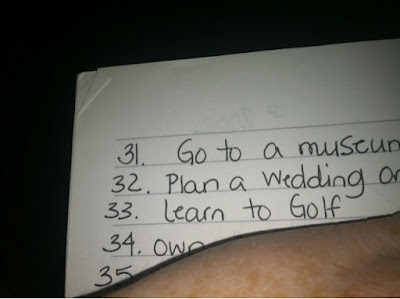 31. Go to a museum
32. Plan a wedding or
33. learn to Golf
34. own
35.